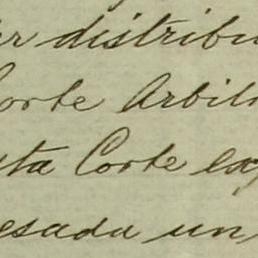 er distribu
Corte Arbit
sta Corte la
esada un